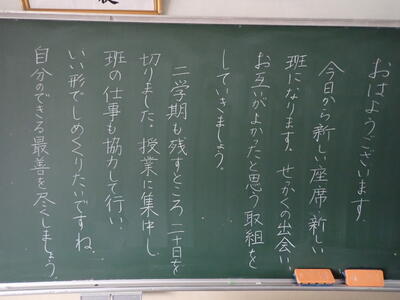 おはようございます。
今日から新しい座席、新しい
班になります。せっかくの出会い
お互いがよかったと思う取組を
していきましょう。
二学期も残すところ二十日を
切りました。授業に集中し
班の仕事も協力して行い
いい形でしめくくりたいですね。
自分のできる最善を尽くしましょう。